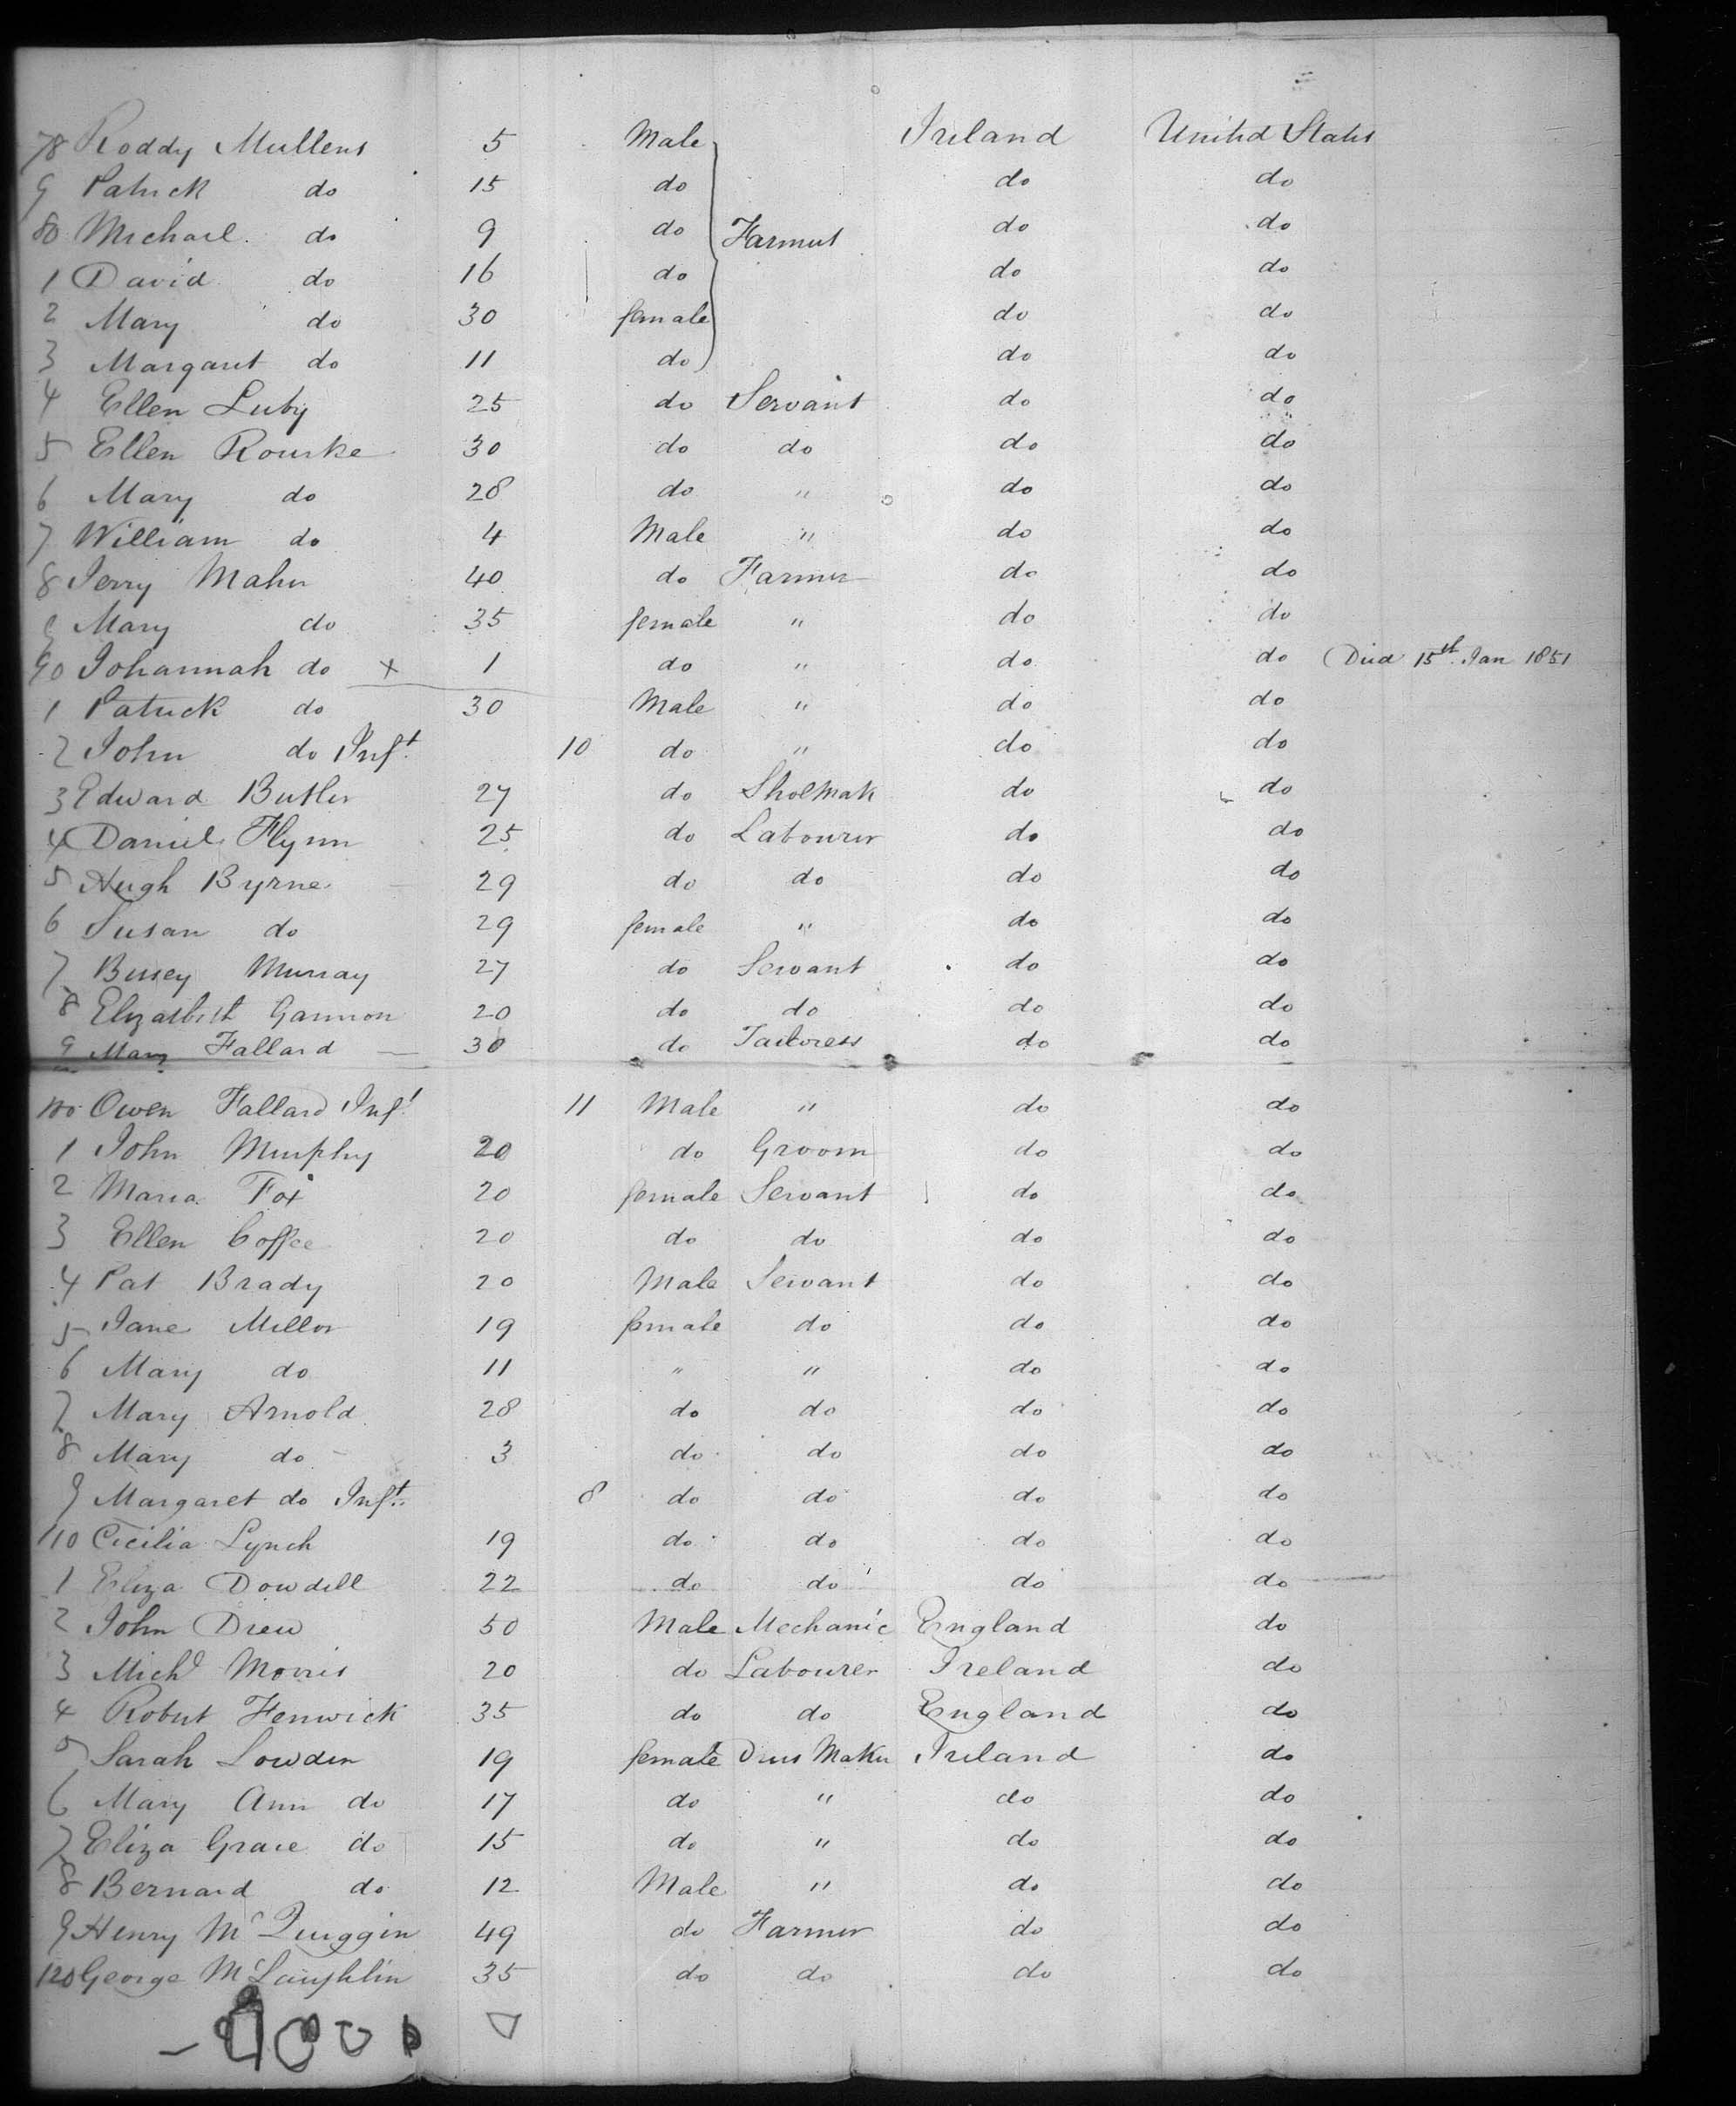 78 Roddy Mullens 5 Male Ireland United States
9 Patrick do 15 do do do
80 Michael do 9 do Farmers do do
1 David do 16 do do do
2 Mary do 30 female do do
3 Margaret do 11 do do do
4 Ellen Luby 25 do Servant do do
5 Ellen Rourke 30 do do do do
6 Mary do 28 do " do do
7 William do 4 Male " do do
8 Jerry Maher 40 do Farmer do do
9 Mary do 35 female " do do
90 Johannah do x 1 do " do do Died 15th Jan 1851
1 Patrick do 30 Male " do do
2 John do Inft. 10 do " do do
3 Edward Butler 27 do Shoemak do do
4 Daniel Flynn 25 do Labourer do do
5 Hugh Byrne 29 do do do do
6 Susan do 29 female " do do
7 Bessey Murray 27 do Servant do do
8 Elizabeth Gannon 20 do do do do
9 Mary Fallard 30 do Tailoress do do
100 Owen Fallard Inft 11 Male " do do
1 John Murphy 20 do Groom do do
2 Maria Fox 20 female Servant do do
3 Ellen Coffee 20 do do do do
4 Pat Brady 20 Male Servant do do
5 Jane Mellor 19 female do do do
6 Mary do 11 " " do do
7 Mary Arnold 28 do do do do
8 Mary do 3 do do do do
9 Margaret do Inft. 8 do do do do
110 Cicilia Lynch 19 do do do do
1 Eliza Dowdell 22 do do do do
2 John Drew 50 Male Mechanic England do
3 Michl Morris 20 do Labourer Ireland do
4 Robert Fenwick 35 do do England do
5 Sarah Lowden 19 female Dress Maker Ireland do
6 Mary Ann do 17 do " do do
7 Eliza Grace do 15 do " do do
8 Bernard do 12 Male " do do
9 Henry McQuiggin 49 do Farmer do do
120 George McLaughlin 35 do do do do